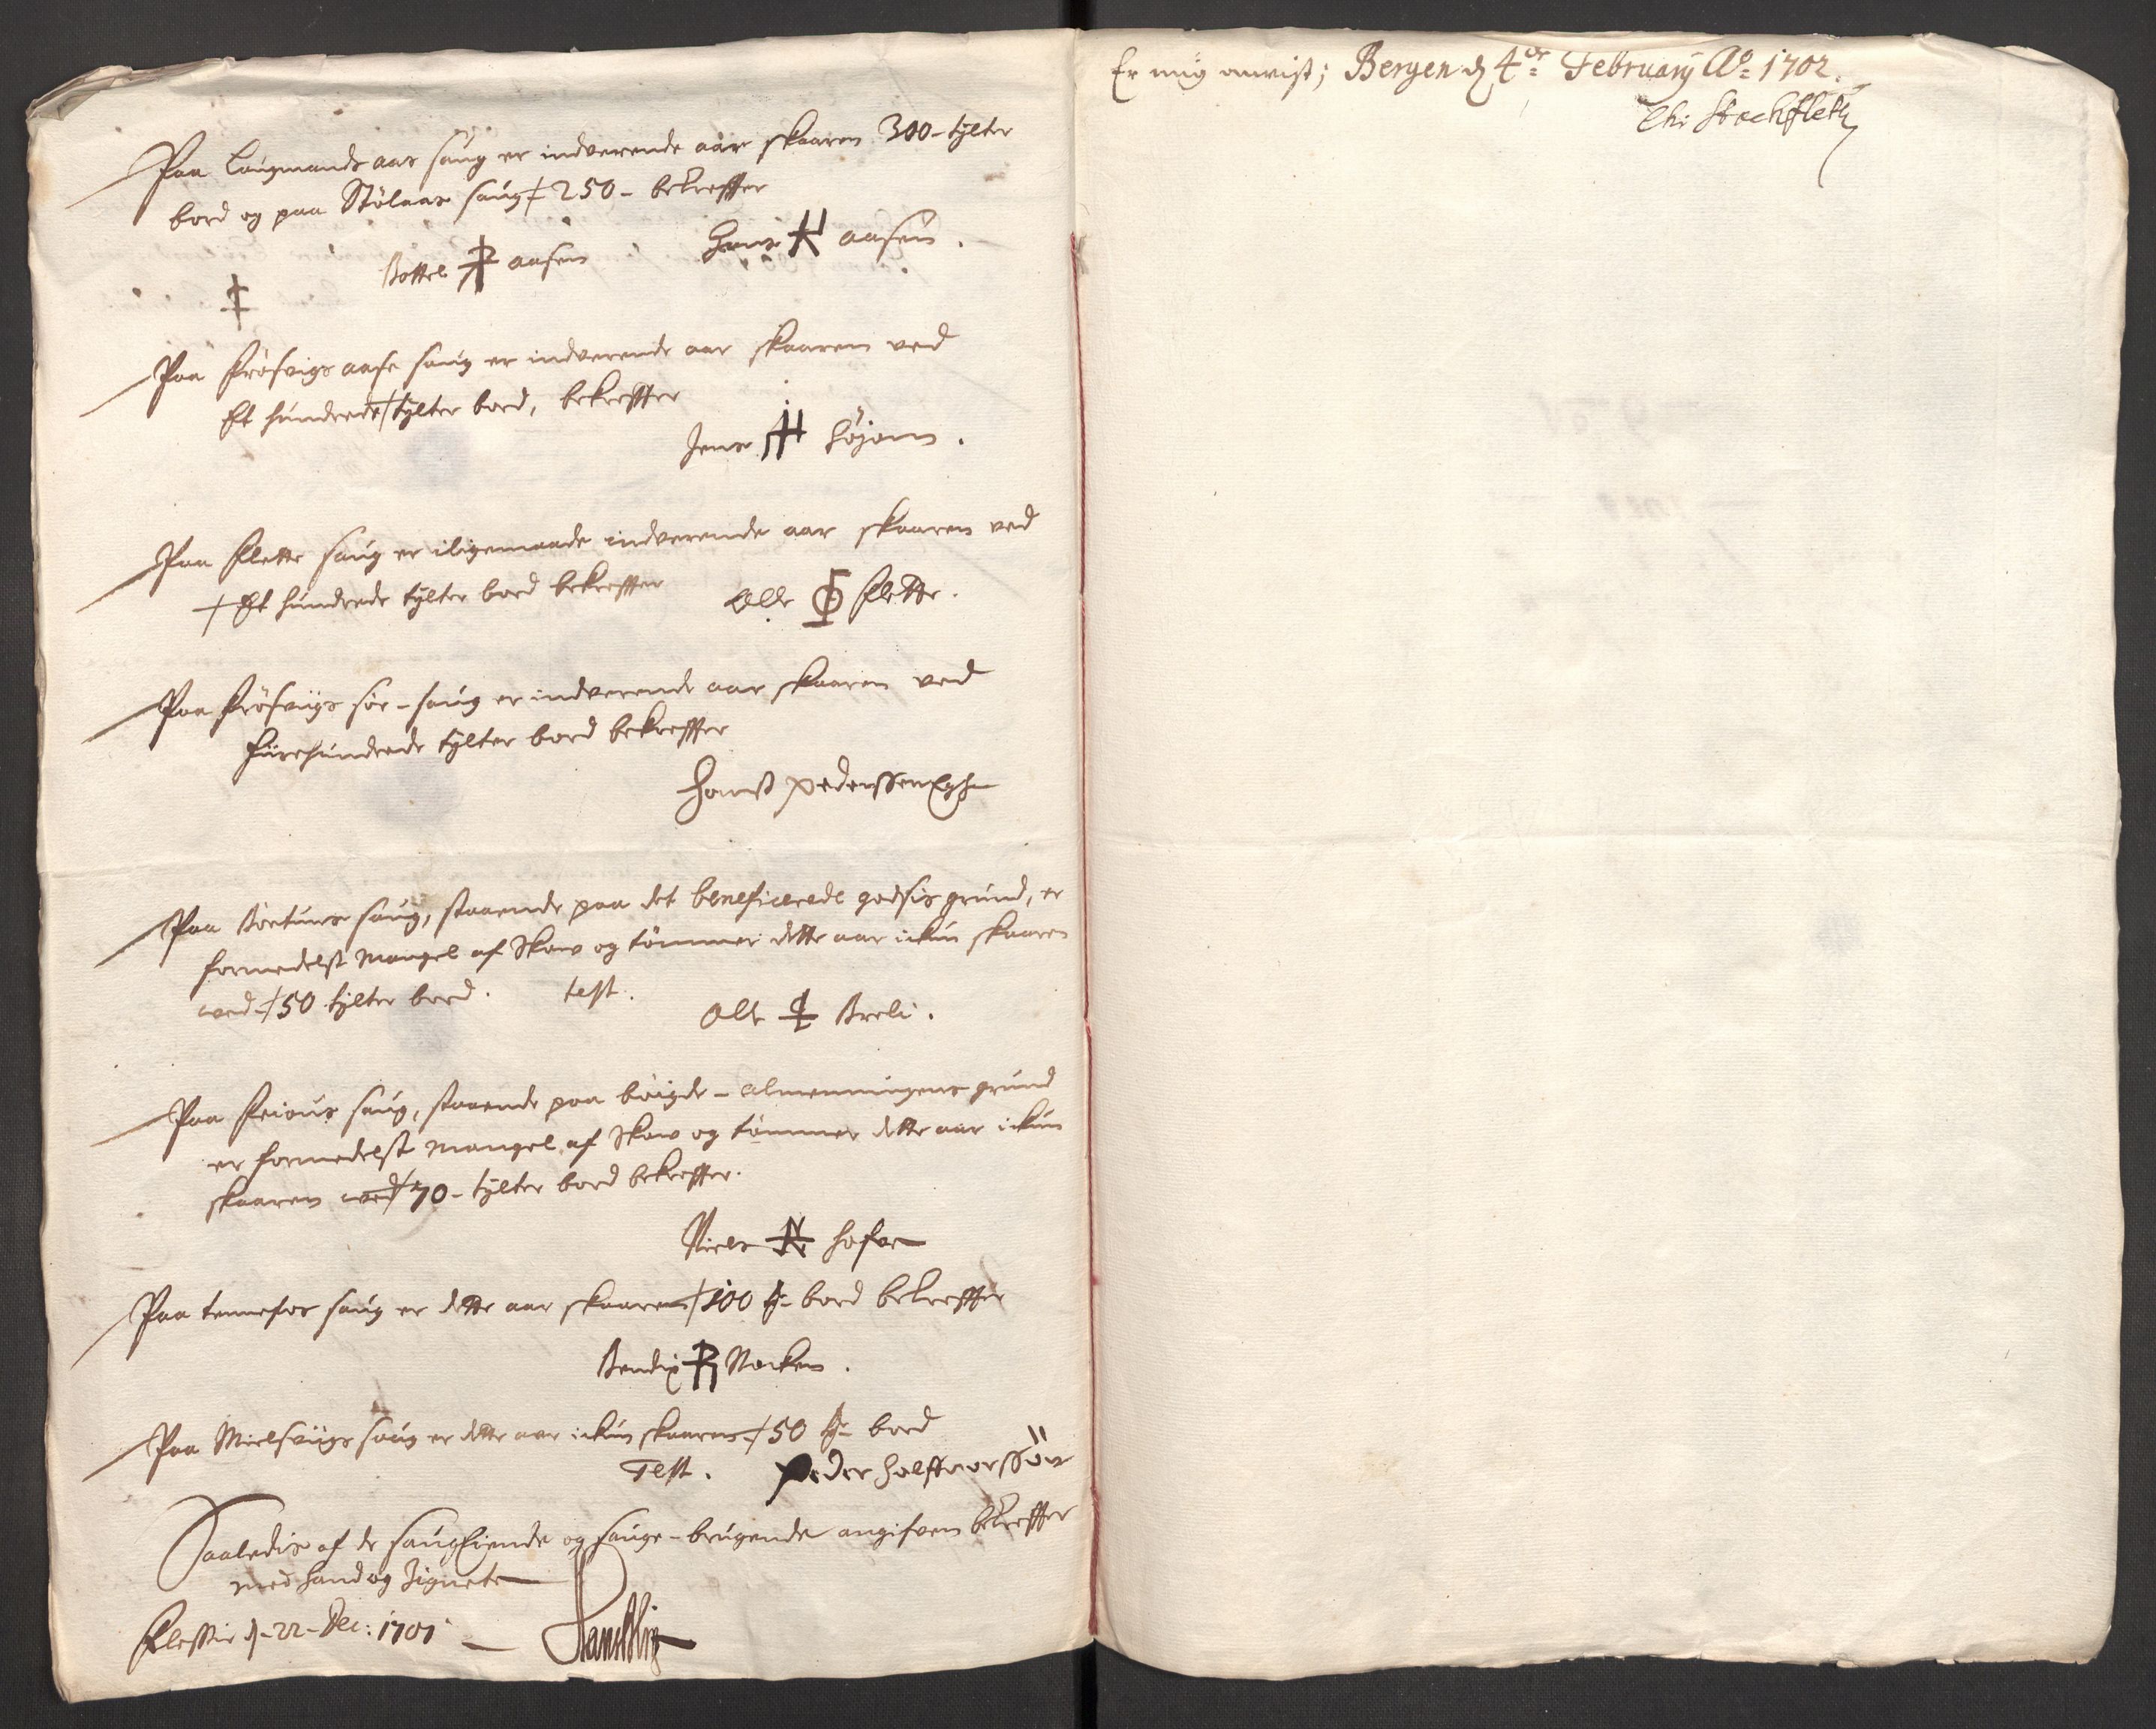 Paa Laugmands aas saug er indverende aar skaaren 300 - tylter
bord og paa Stølaas saug 250 - bekreffter
Bottel aasen Hans H aasen.
Paa Frøsvigs aase saug er indverende aar skaaren ved
Et hundrede tylter bord, bekreffter
Jens H Høyom.
Paa Flette saug er iligemaade indverende aar skaaren ved
Et hundrede tylter bord bekreffter Olle Flette.
Paa Frøsviigs sør - saug er indverende aar skaaren ved
fiirehundrede tylter bord bekreffter
Hanß pederssen
Paa saug, staaende paa det beneficerede godsis grund, er
formedelst Mangel af Skow og tømmer dette aar ickun skaaren
wed 50 tylter bord. test. Ole Breli.
Paa saug, staaende paa böigde - almenningens grund
er formedelst Mangel af Skow og tømmer dette aar ickun
skaaren wed 70 - tylter bord bekreffter.
Niels N
Paa tennefos saug er dette aar skaaren 100 tƺ- bord bekreffter
Bendix Nacken.
Paa Mielsviigs saug er dette aar ickun skaaren 50 tƺ- bord
Test. peder halffuorssön
Saaledis af de saugEiende og sauge - brugende angifven bekreffter
med hand og Zignete
d - 22 - Dec: 1701
Er mig anvist; Bergen d 4de February Ao 1702.
Chr Stockfleth